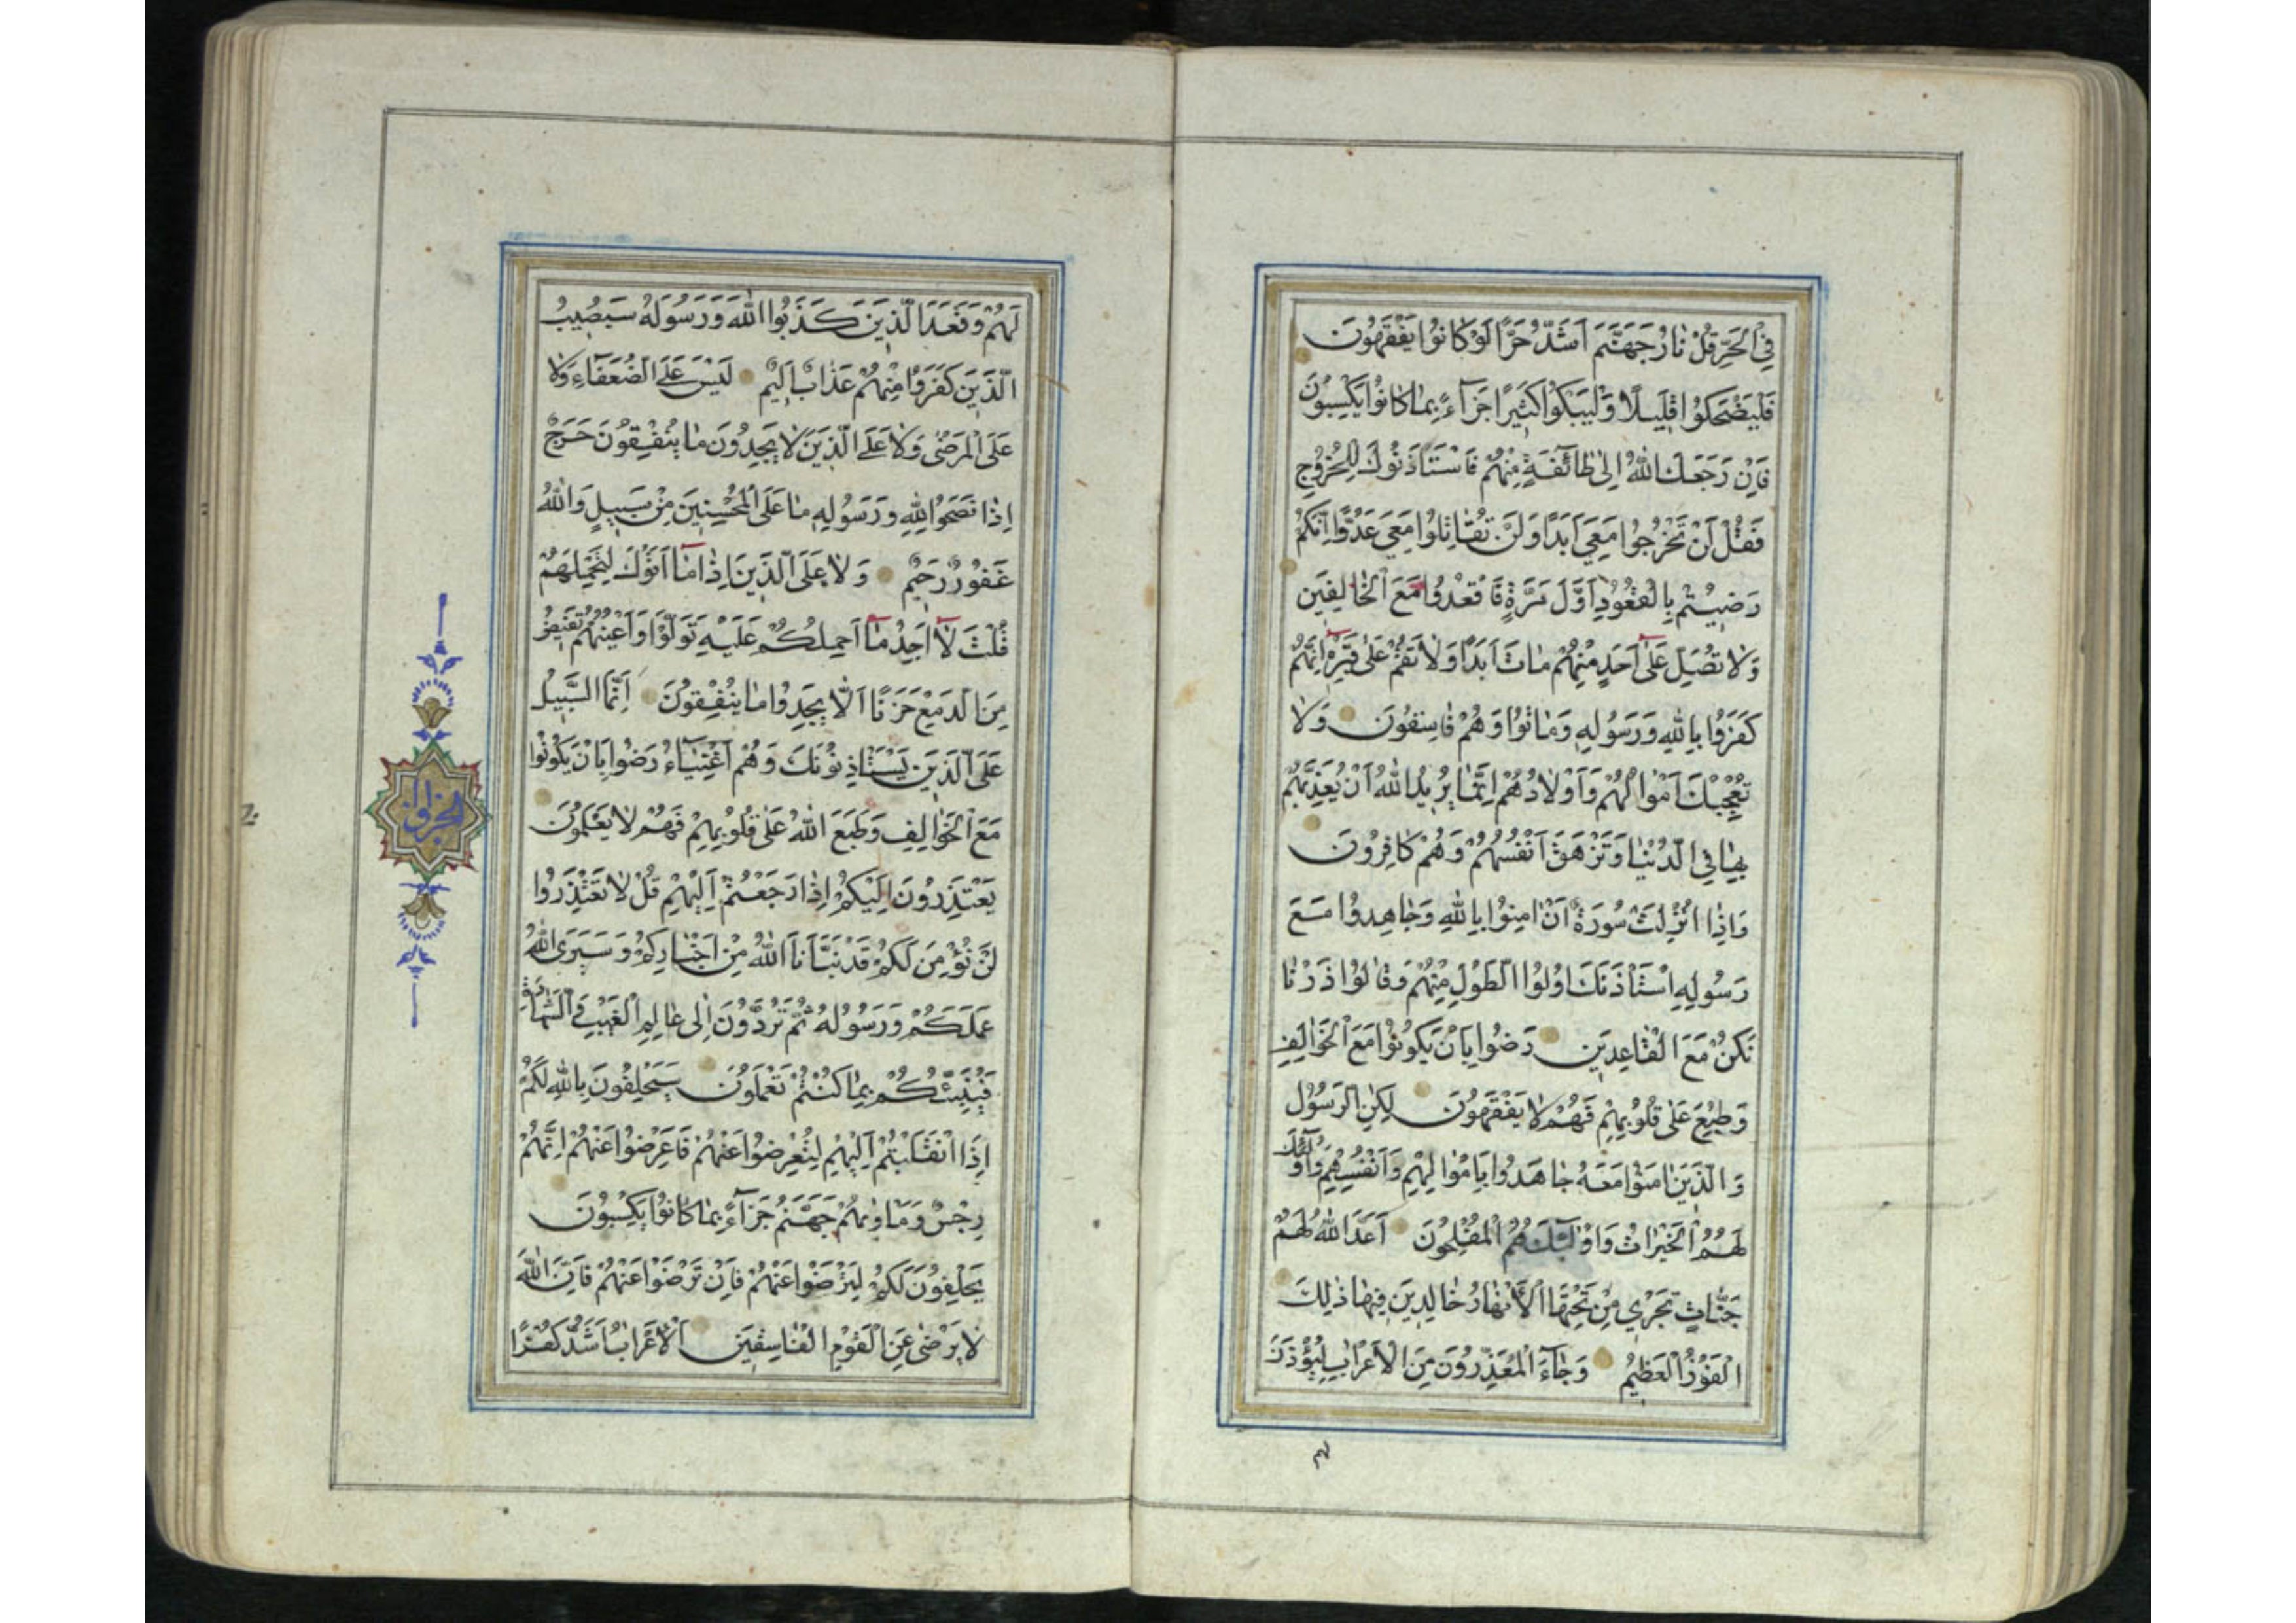 فِي الْحَرِّ قُلْ نَارُ جَهَنَّمَ اَشَدُّ حَرًّا لَوْ كَانُوا يَفْقَهُونَ
فَلْيَضْحَكُوا قَلِيلًا وَلْيَبْكُوا كَثِيرًا جَزَآءً بِمَا كَانُوا يَكْسِبُونَ
فَاِنْ رَجَعَكَ اللهُ اِلىٰ طَآئِفَةٍ مِنْهُمْ فَاسْتَأْذَنُوكَ لِلْخُرُوجِ
فَقُلْ لَنْ تَخْرُجُوا مَعِيَ اَبَدًا وَلَنْ تُقَاتِلُوا مَعِيَ عَدُوًّا اِنَّكُمْ
رَضِيتُمْ بِالْقُعُودِ اَوَّلَ مَرَّةٍ فَاقْعُدُوا مَعَ الْخَالِفِينَ
وَلَا تُصَلِّ عَلىٰٓ اَحَدٍ مِنْهُمْ مَاتَ اَبَدًا وَلَا تَقُمْ عَلىٰ قَبْرِهِٓ اِنَّهُمْ
كَفَرُوا بِاللهِ وَرَسُولِهِ وَمَاتُوا وَهُمْ فَاسِقُونَ وَلَا
تُعْجِبْكَ اَمْوَالُهُمْ وَاَوْلَادُهُمْ اِنَّمَا يُرِيدُ اللهُ اَنْ يُعَذِّبَهُمْ
بِهَا فِي الدُّنْيَا وَتَزْهَقَ اَنْفُسُهُمْ وَهُمْ كَافِرُونَ
وَاِذَا اُنْزِلَتْ سُورَةٌ اَنْ اٰمِنُوا بِاللهِ وَجَاهِدُوا مَعَ
رَسُولِهِ اسْتَأْذَنَكَ اُولُوا الطَّوْلِ مِنْهُمْ وَقَالُوا ذَرْنَا
نَكُنْ مَعَ الْقَاعِدِينَ رَضُوا بِاَنْ يَكُونُوا مَعَ الْخَوَالِفِ
وَطُبِعَ عَلىٰ قُلُوبِهِمْ فَهُمْ لَا يَفْقَهُونَ لٰكِنِ الرَّسُولُ
وَالَّذِينَ اٰمَنُوا مَعَهُ جَاهَدُوا بِاَمْوَالِهِمْ وَاَنْفُسِهِمْ وَاُولٰٓئِكَ
لَهُمُ الْخَيْرَاتُ وَاُولٰٓئِكَ هُمُ الْمُفْلِحُونَ اَعَدَّ اللهُ لَهُمْ
جَنَّاتٍ تَجْرِي مِنْ تَحْتِهَا الْاَنْهَارُ خَالِدِينَ فِيهَا ذٰلِكَ
الْفَوْزُ الْعَظِيمُ وَجَآءَ الْمُعَذِّرُونَ مِنَ الْاَعْرَابِ لِيُؤْذَنَ
لهم
لَهُمْ وَقَعَدَ الَّذِينَ كَذَبُوا اللهَ وَرَسُولَهُ سَيُصِيبُ
الَّذِينَ كَفَرُوا مِنْهُمْ عَذَابٌ اَلِيمٌ لَيْسَ عَلَى الضُّعَفَآءِ وَلَا
عَلَى الْمَرْضىٰ وَلَا عَلَى الَّذِينَ لَا يَجِدُونَ مَا يُنْفِقُونَ حَرَجٌ
اِذَا نَصَحُوا لِلّٰهِ وَرَسُولِهِ مَا عَلَى الْمُحْسِنِينَ مِنْ سَبِيلٍ وَاللهُ
غَفُورٌ رَحِيمٌ وَلَا عَلَى الَّذِينَ اِذَا مَآ اَتَوْكَ لِتَحْمِلَهُمْ
قُلْتَ لَآ اَجِدُ مَآ اَحْمِلُكُمْ عَلَيْهِ تَوَلَّوْا وَاَعْيُنُهُمْ تَفِيضُ
مِنَ الدَّمْعِ حَزَنًا اَلَّا يَجِدُوا مَا يُنْفِقُونَ اِنَّمَا السَّبِيلُ
عَلَى الَّذِينَ يَسْتَأْذِنُونَكَ وَهُمْ اَغْنِيَآءُ رَضُوا بِاَنْ يَكُونُوا
مَعَ الْخَوَالِفِ وَطَبَعَ اللهُ عَلىٰ قُلُوبِهِمْ فَهُمْ لَا يَعْلَمُونَ
يَعْتَذِرُونَ اِلَيْكُمْ اِذَا رَجَعْتُمْ اِلَيْهِمْ قُلْ لَا تَعْتَذِرُوا
لَنْ نُؤْمِنَ لَكُمْ قَدْ نَبَّأَنَا اللهُ مِنْ اَخْبَارِكُمْ وَسَيَرَى اللهُ
عَمَلَكُمْ وَرَسُولُهُ ثُمَّ تُرَدُّونَ اِلىٰ عَالِمِ الْغَيْبِ وَالشَّهَادَةِ
فَيُنَبِّئُكُمْ بِمَا كُنْتُمْ تَعْمَلُونَ سَيَحْلِفُونَ بِاللهِ لَكُمْ
اِذَا انْقَلَبْتُمْ اِلَيْهِمْ لِتُعْرِضُوا عَنْهُمْ فَاَعْرِضُوا عَنْهُمْ اِنَّهُمْ
رِجْسٌ وَمَأْوٰيهُمْ جَهَنَّمُ جَزَآءً بِمَا كَانُوا يَكْسِبُونَ
يَحْلِفُونَ لَكُمْ لِتَرْضَوْا عَنْهُمْ فَاِنْ تَرْضَوْا عَنْهُمْ فَاِنَّ اللهَ
لَا يَرْضىٰ عَنِ الْقَوْمِ الْفَاسِقِينَ اَلْاَعْرَابُ اَشَدُّ كُفْرًا